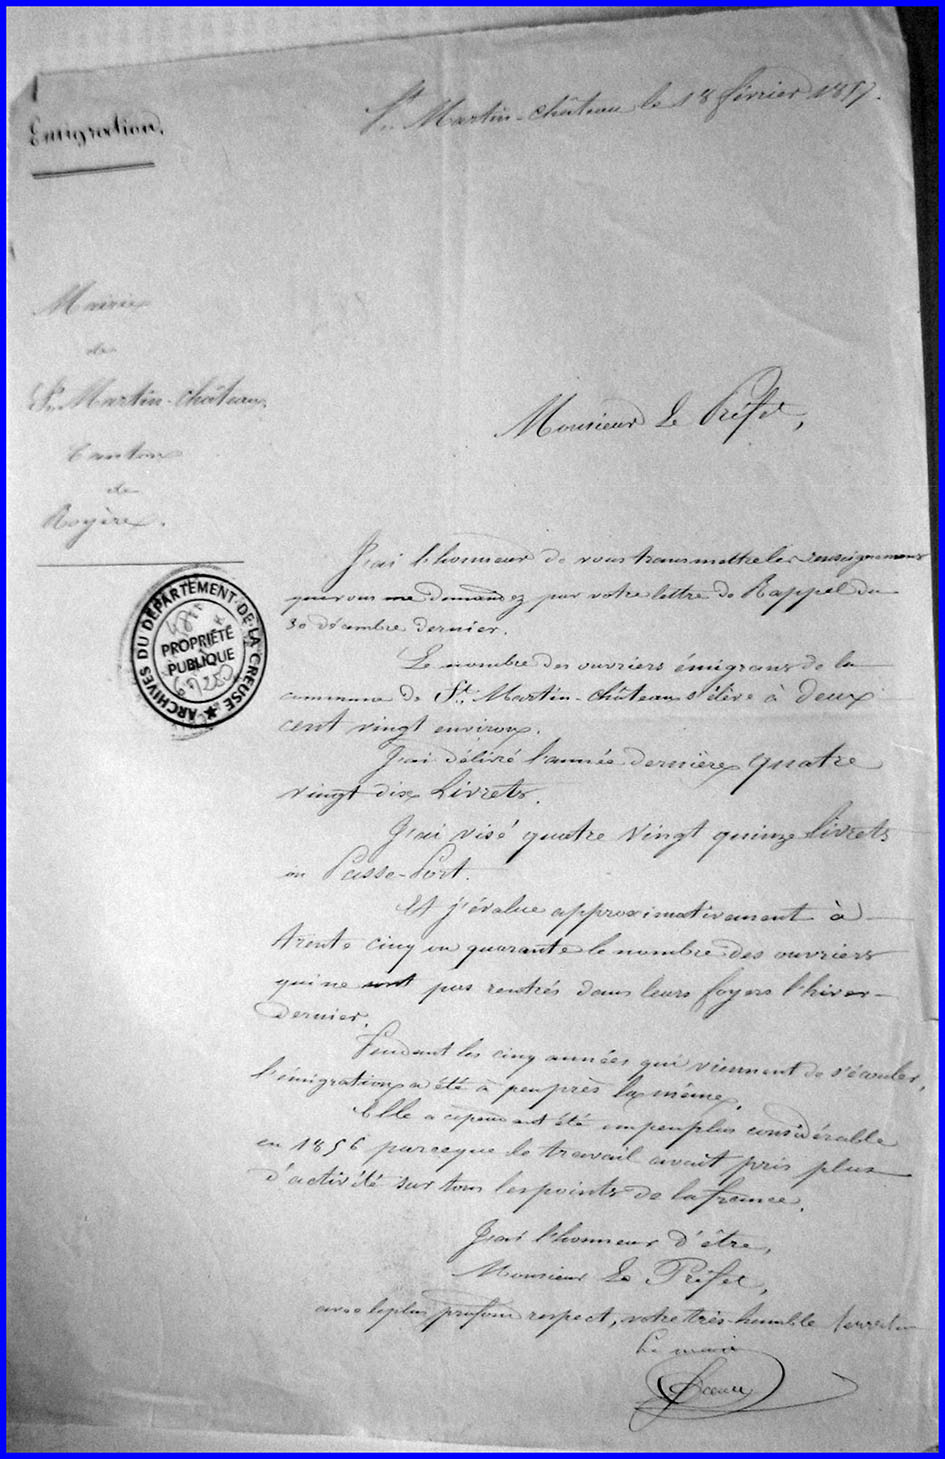 Emigration.
St. Martin-château le 18 février 1857.
Mairie
de
St. Martin-château.
Canton
de
Royère.
Monsieur Le Préfet,
ARCHIVES DU DÉPARTEMENT DE LA CREUSE
PROPRIÉTÉ
PUBLIQUE
J'ai l'honneur de vous transmettre les renseignemens
que vous me demandez par votre lettre de Rappel du
30 décembre dernier.
Le nombre des ouvriers émigrans de la
commune de St. Martin-château s'élève à deux
cent vingt environ.
J'ai délivré l'année dernière quatre
vingt dix Livrets.
J'ai visé quatre vingt quinze livrets
ou Passe-Port.
Et j'évalue approximativement à
trente cinq ou quarante le nombre des ouvriers
qui ne sont pas rentrés dans leurs foyers l'hiver
dernier.
Pendant les cinq années qui viennent de s'écouler,
l'émigration a été à peu près la même.
Elle a cependant été un peu plus considérable
en 1856 parceque le travail avait pris plus
d'activité sur tous les points de la france.
J'ai l'honneur d'être,
Monsieur Le Préfet,
avec le plus profond respect, votre très humble serviteur
Le maire